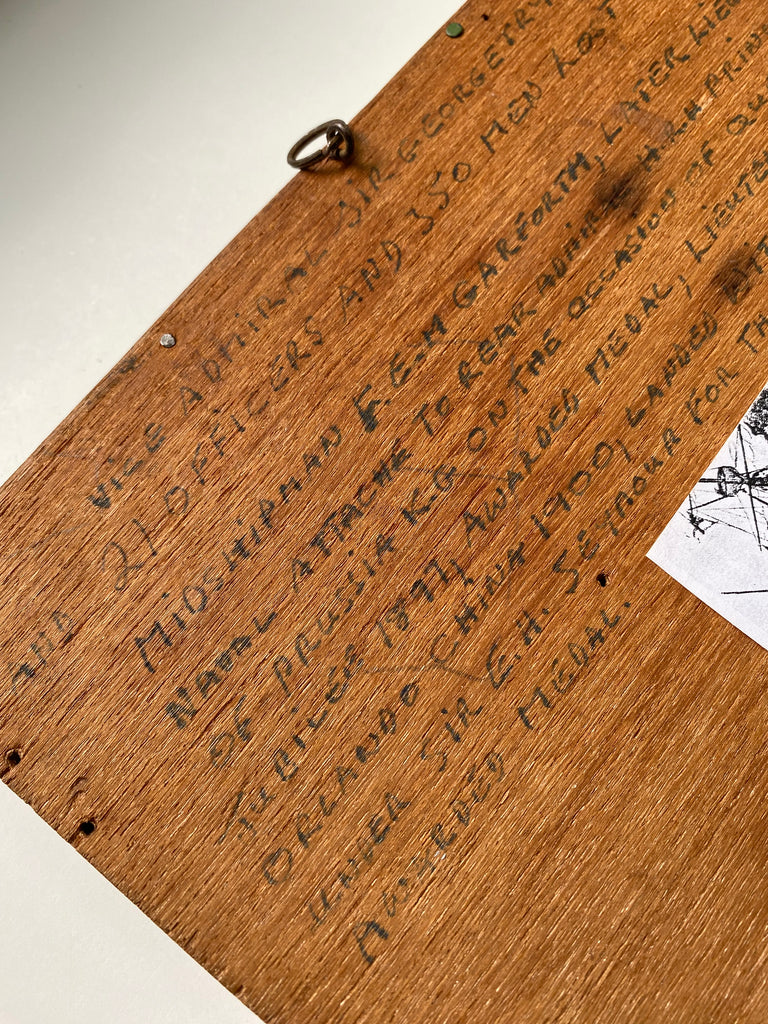 VICE ADMIRAL SIR GEORGE TRY
AND 21 OFFICERS AND 350 MEN LOST
MIDSHIPMAN F.E.M GARFORTH, LATER LIE
NAVAL ATTACHE TO REAR ADMIRAL H.R.H PRIN
OF PRUSSIA K.G ON THE OCCASION OF QU
JUBILEE 1897, AWARDED MEDAL, LIEUTE
ORLANDO CHINA 1900, LANDED WIT
UNDER SIR E.H. SEYMOUR FOR TH
AWARDED MEDAL.